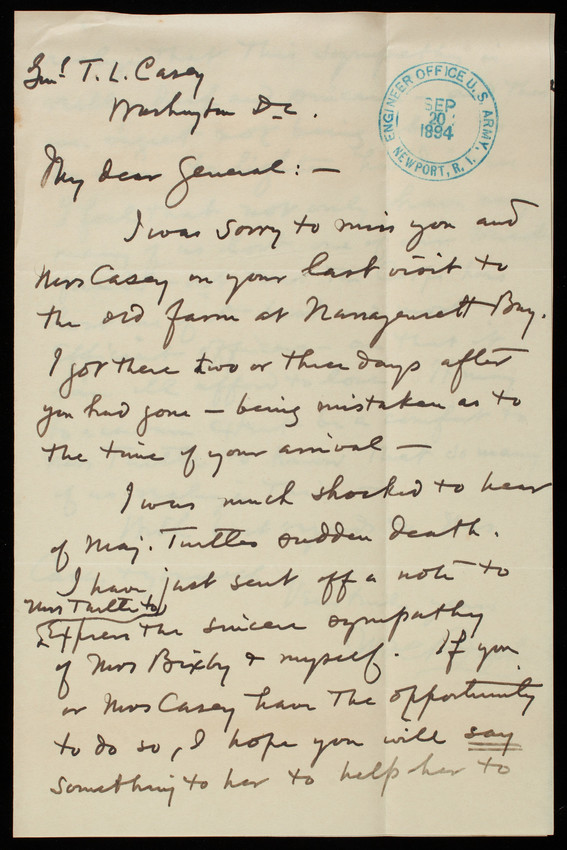 Genl T. L. Casey
Washington D.C.
ENGINEER OFFICE U.S. ARMY,
SEP
20
1894
NEWPORT, R. I.
My dear General: —
I was sorry to miss you and
Mrs Casey on your last visit to
the old farm at Narragansett Bay.
I got there two or three days after
you had gone — being mistaken as to
the time of your arrival —
I was much shocked to hear
of Maj. Turtles sudden death.
I have just sent off a note to
Mrs Turtle to
Express the sincere sympathy
of Mrs Bixby & myself. If you
or Mrs Casey have the opportunity
to do so, I hope you will say
something to her to help her to